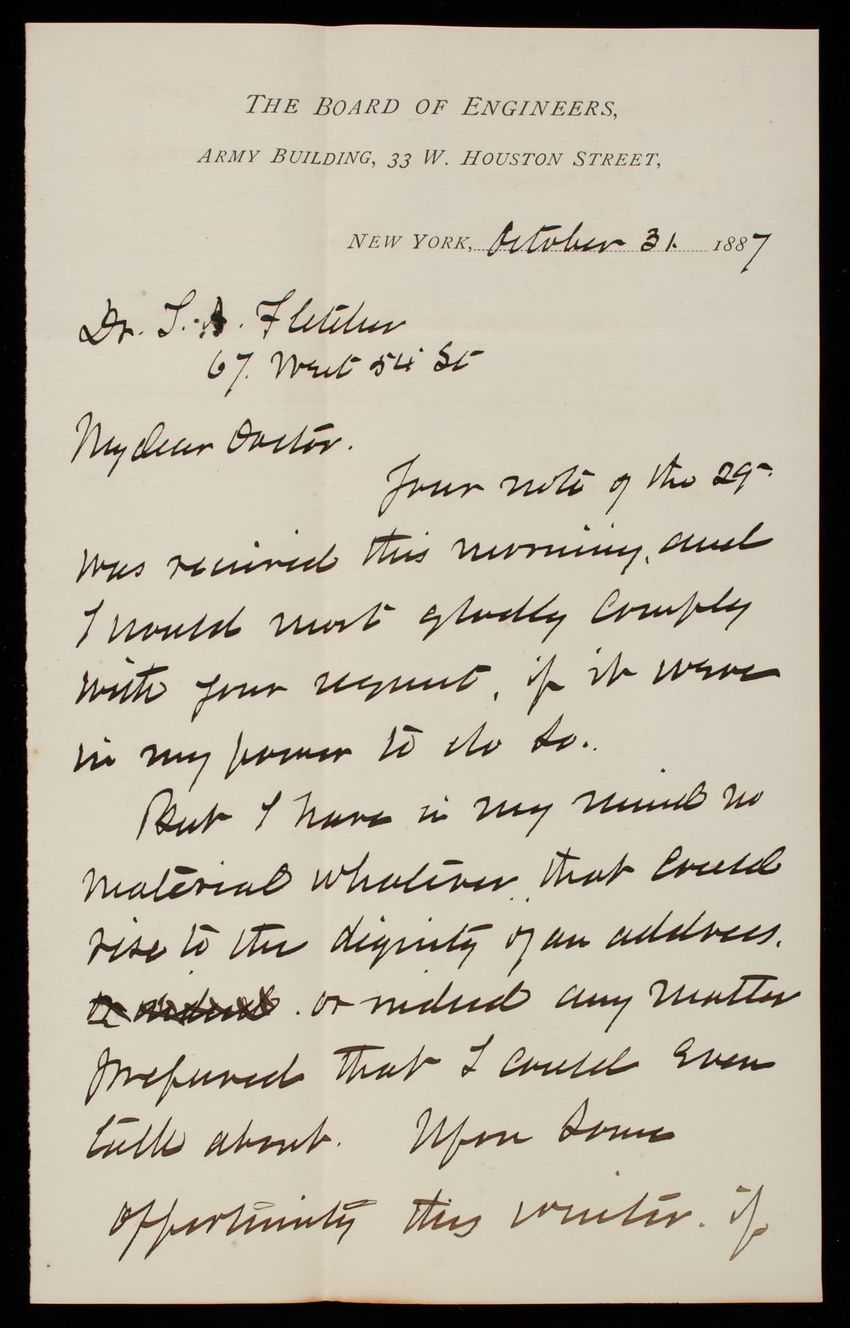 THE BOARD OF ENGINEERS,
ARMY BUILDING, 33 W. HOUSTON STREET,
NEW YORK, October 31. 1887
Dr. T. A. Fletcher
67. West 54 St
My dear Doctor.
Your note of the 29th
was received this morning, and
I would most gladly comply
with your request, if it were
in my power to do so.
But I have in my mind no
material whatever that could
rise to the dignity of an address.
or indeed any matter
prepared that I could even
talk about. Upon some
opportunity this winter. if